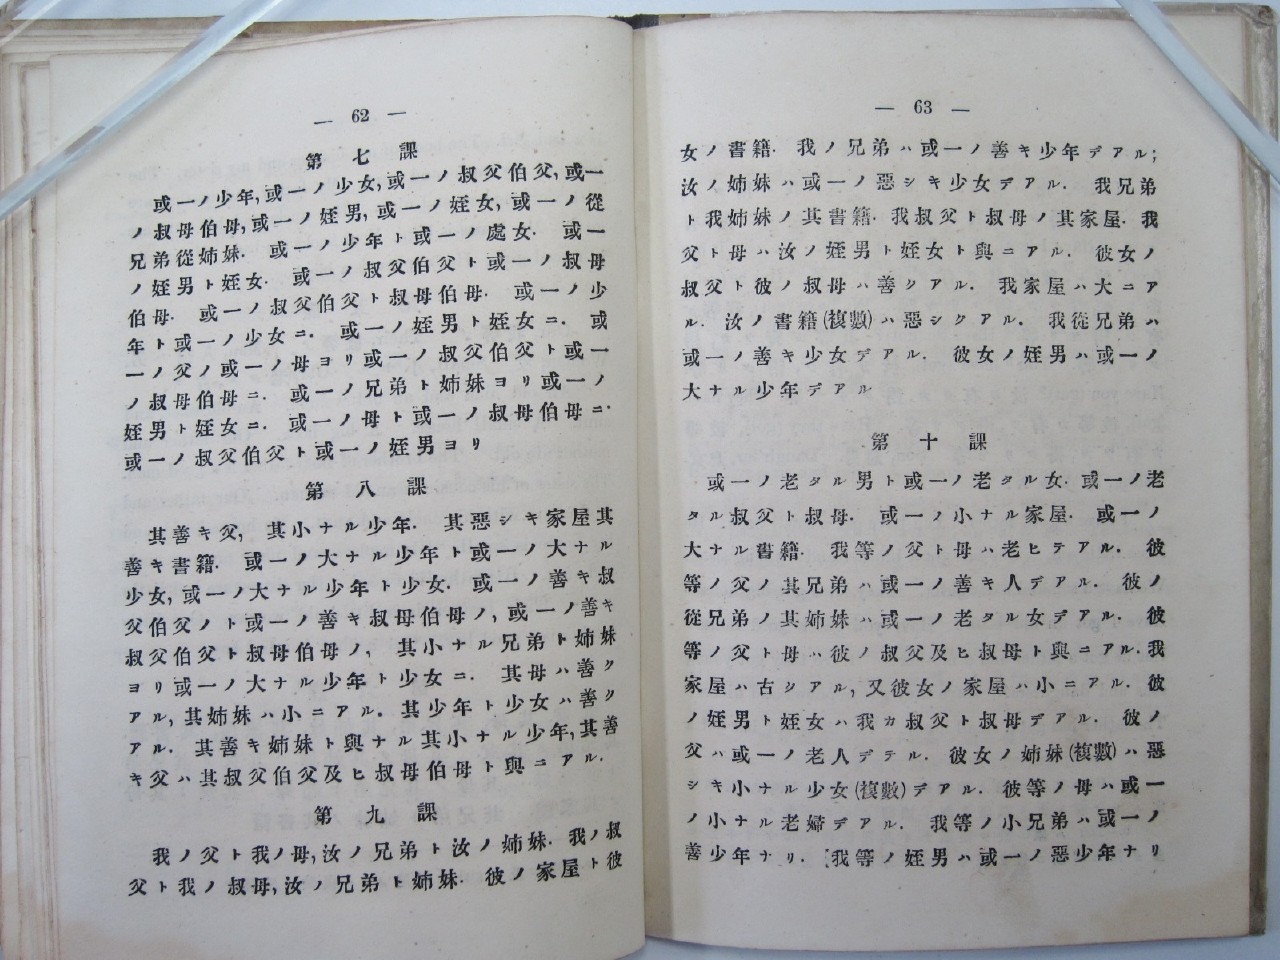 — 62 —
第七課
或一ノ少年,或一ノ少女,或一ノ叔父伯父,或一
ノ叔母伯母,或一ノ姪男,或一ノ姪女,或一ノ從
兄弟從姉妹. 或一ノ少年ト或一ノ處女. 或一
ノ姪男ト姪女. 或一ノ叔父伯父ト或一ノ叔母
伯母. 或一ノ叔父伯父ト叔母伯母. 或一ノ少
年ト或一ノ少女ニ. 或一ノ姪男ト姪女ニ. 或
一ノ父ノ或一ノ母ヨリ或一ノ叔父伯父ト或一
ノ叔母伯母ニ. 或一ノ兄弟ト姉妹ヨリ或一ノ
姪男ト姪女ニ. 或一ノ母ト或一ノ叔母伯母ニ.
或一ノ叔父伯父ト或一ノ姪男ヨリ
第八課
其善キ父, 其小ナル少年. 其惡シキ家屋其
善キ書籍. 或一ノ大ナル少年ト或一ノ大ナル
少女,或一ノ大ナル少年ト少女. 或一ノ善キ叔
父伯父ノト或一ノ善キ叔母伯母ノ,或一ノ善キ
叔父伯父ト叔母伯母ノ, 其小ナル兄弟ト姉妹
ヨリ或一ノ大ナル少年ト少女ニ. 其母ハ善ク
アル,其姉妹ハ小ニアル. 其少年ト少女ハ善ク
アル. 其善キ姉妹ト與ナル其小ナル少年,其善
キ父ハ其叔父伯父及ヒ叔母伯母ト與ニアル.
第九課
我ノ父ト我ノ母,汝ノ兄弟ト汝ノ姉妹. 我ノ叔
父ト我ノ叔母,汝ノ兄弟ト姉妹. 彼ノ家屋ト彼
— 63 —
女ノ書籍. 我ノ兄弟ハ或一ノ善キ少年デアル;
汝ノ姉妹ハ或一ノ惡シキ少女デアル. 我兄弟
ト我姉妹ノ其書籍. 我叔父ト叔母ノ其家屋. 我
父ト母ハ汝ノ姪男ト姪女ト與ニアル. 彼女ノ
叔父ト彼ノ叔母ハ善クアル. 我家屋ハ大ニア
ル. 汝ノ書籍(複數)ハ惡シクアル. 我從兄弟ハ
或一ノ善キ少女デアル. 彼女ノ姪男ハ或一ノ
大ナル少年デアル
第十課
或一ノ老タル男ト或一ノ老タル女. 或一ノ老
タル叔父ト叔母. 或一ノ小ナル家屋. 或一ノ
大ナル書籍. 我等ノ父ト母ハ老ヒテアル. 彼
等ノ父ノ其兄弟ハ或一ノ善キ人デアル. 彼ノ
從兄弟ノ其姉妹ハ或一ノ老タル女デアル. 彼
等ノ父ト母ハ彼ノ叔父及ヒ叔母ト與ニアル. 我
家屋ハ古シアル,又彼女ノ家屋ハ小ニアル. 彼
ノ姪男ト姪女ハ我カ叔父ト叔母デアル. 彼ノ
父ハ或一ノ老人デテル. 彼女ノ姉妹(複數)ハ惡
シキ小ナル少女(複數)デアル. 彼等ノ母ハ或一
ノ小ナル老婦デアル. 我等ノ小兄弟ハ或一ノ
善少年ナリ. [我等ノ姪男ハ或一ノ惡少年ナリ